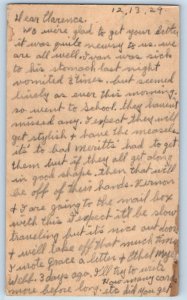 12, 13, 29
Dear Clarence.
Wo were glad to get your letter
it was quite newsy to us. we
are all well. Ivan was sick
to his stomach, last night
vomited 3 times. but seemed
lively as ever this morning.
so went to school. they havent
missed any. I expect they will
get stylish & have the measels
it's to bad Meritts had to get
them but if they all get along
in good shape. then that will
be off of their hands. Vernon
& I are going to the mail box
with this. I expect it'll be slow
traveling but its nice out doors
& will take off that much time
I wrote Grace a letter & Ethel
Webb. 3 days ago. I'll try to write
more before long. did you get
How many cards